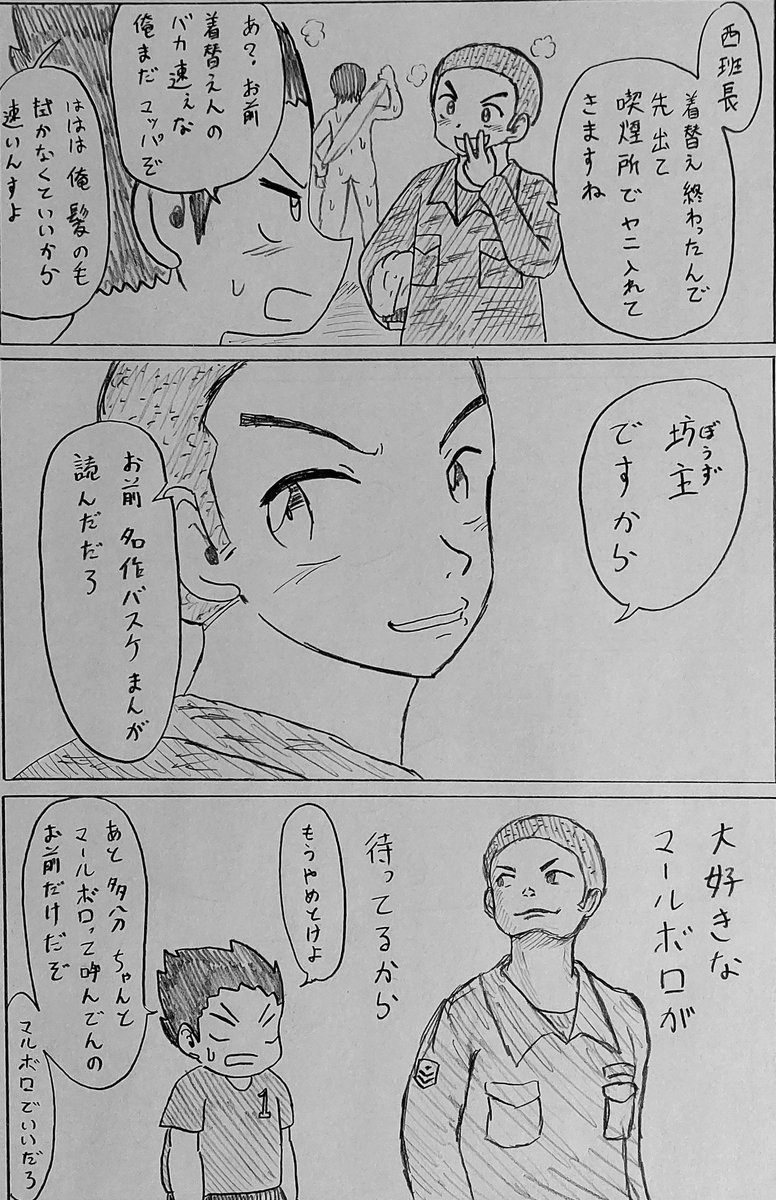 西班長
着替え終わったんで
先出て
喫煙所でヤニ入れて
きますね
あ?お前
着替えんの
バカ速えな
俺まだマッパぞ
ははは俺髪の毛
拭かなくていいから
速いんすよ
坊主
ぼうず
ですから
お前名作バスケまんが
読んだだろ
大好きな
マールボロが
待ってるから
もうやめとけよ
あと多分ちゃんと
マールボロって呼んでんの
お前だけだぞ
マルボロでいいだろ
1